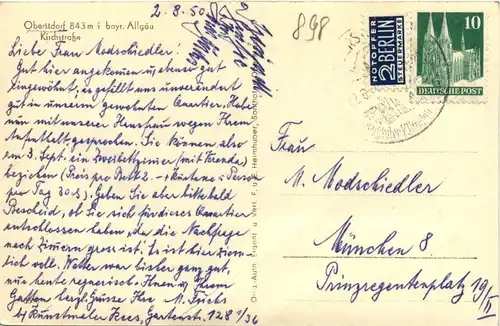 Oberstdorf 843 m i bayr. Allgäu
Kirchstraße
2. 8. 50.
Liebe Frau Modschiedler!
Gut hier angekommen u. ebenso gut
eingewöhnt, es gefällt uns unverändert
gut in unserem gewohnten Quartier. Habe
nun mit unserer Hausfrau wegen Ihrem
Aufenthalt gesprochen. Sie können also
am 3. Sept. ein Zweibettzimmer (mit Veranda)
beziehen (Preis pro Bett 2.- + Kurtaxe + Person
pro Tag 30 ₰). Geben Sie aber bitte bald
Bescheid, ob Sie sich für dieses Quartier
entschlossen haben, da die Nachfrage
nach Zimmern gross ist. Es ist hier ziem-
lich voll. Wetter war bisher ganz gut,
nur heute regnerisch. Ihnen u. Ihrem
Gatten herzl. Grüsse Ihre M. Fuchs
b/ Kunstmaler Hees, Gartenstr. 128 1/36
Orig. Aufn. Eigent. u. Verl. F. u. E. Heimhuber, Sonthofen
898
NOTOPFER
2 BERLIN
STEUERMARKE
10
DEUTSCHE POST
Frau
M. Modschiedler
München 8
Prinzregentenplatz 19/II